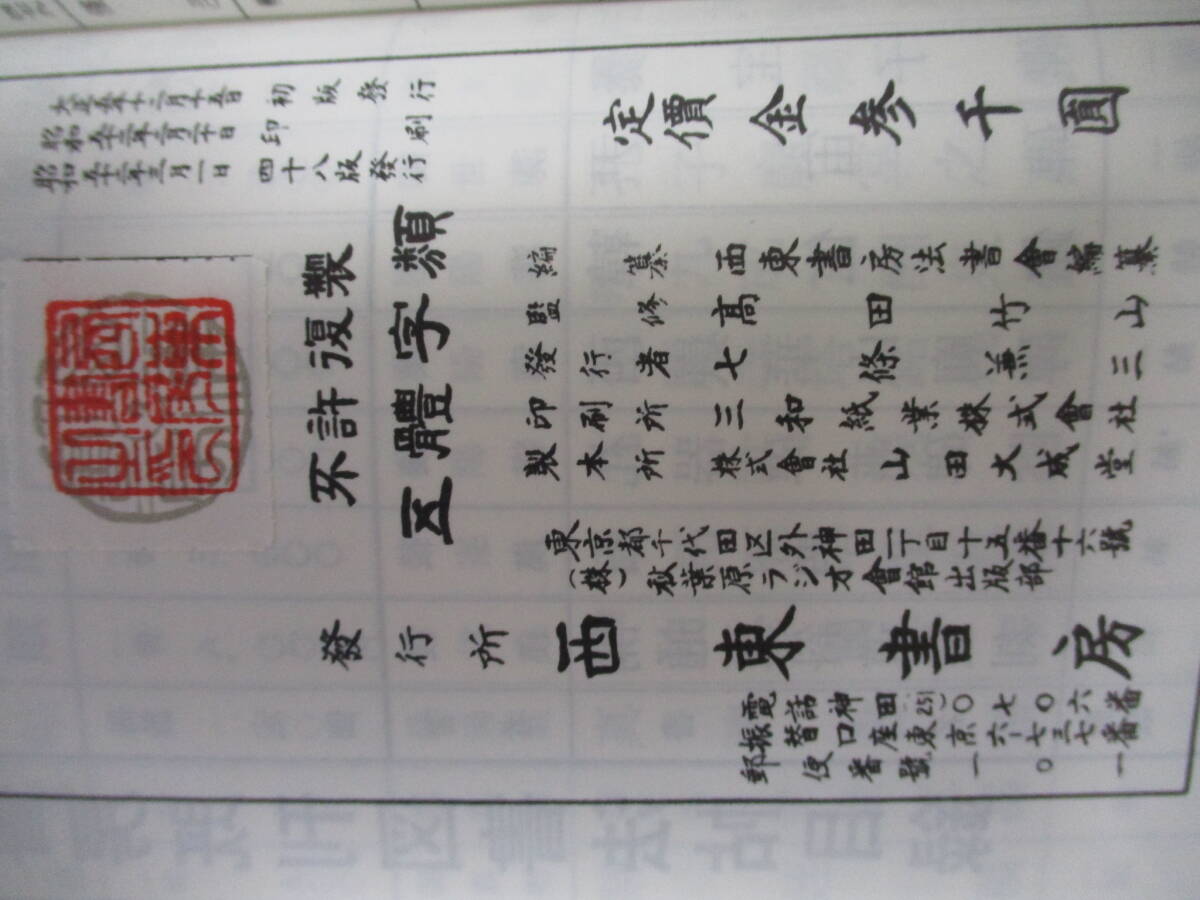 定價金参千圓
大正五年十二月十五日 初版發行
昭和五十三年二月二十日 印刷
昭和五十三年三月一日 四十八版發行
不許復製
五體字類
編纂 西東書房法書會編纂
監修 高田竹山
發行者 七條兼三
印刷所 三和紙業株式會社
製本所 株式會社山田大成堂
東京都千代田区外神田一丁目十五番十六號
(株)秋葉原ラジオ會館出版部
發行所 西東書房
電話神田(251)〇七〇六番
振替口座東京六-七三七七番
郵便番號一〇一